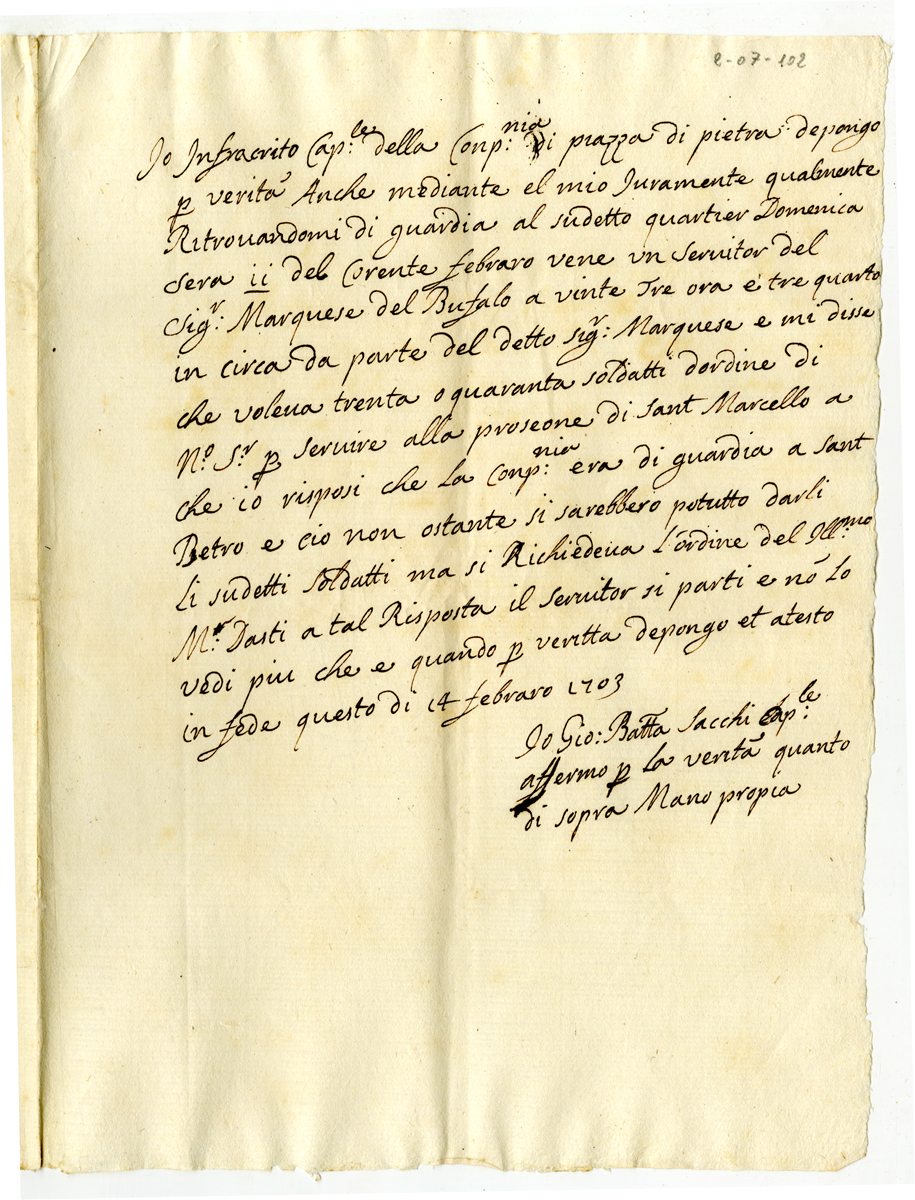 2-07-102
Jo Infracrito Cap:le della Conp:nia di piazza di pietra depongo
p verità Anche mediante el mio Iuramente qualmente
Ritrouandomi di guardia al sudetto quartier Domenica
sera ii del Corente febraro vene vn seruitor del
Sigr: Marquese del Bufalo a vinte Tre ora e tre quarto
in circa da parte del detto sigr: Marquese e mi disse
che voleua trenta o quaranta soldatti dordine di
No. Sr. p seruire alla proseone di sant Marcello a
che io risposi che la Conp:nia era di guardia a sant
Petro e cio non ostante si sarebbero potutto darli
li sudetti soldatti ma si Richiedeua L'ordine del Ill:mo
Mr. Dasti a tal Risposta il seruitor si parti e nō lo
vedi piu che e quando p veritta depongo et atesto
in fede questo di 14 febraro 1703
Jo Gio: Batta Sacchi Cap:le
affermo p la verità quanto
di sopra Mano propia